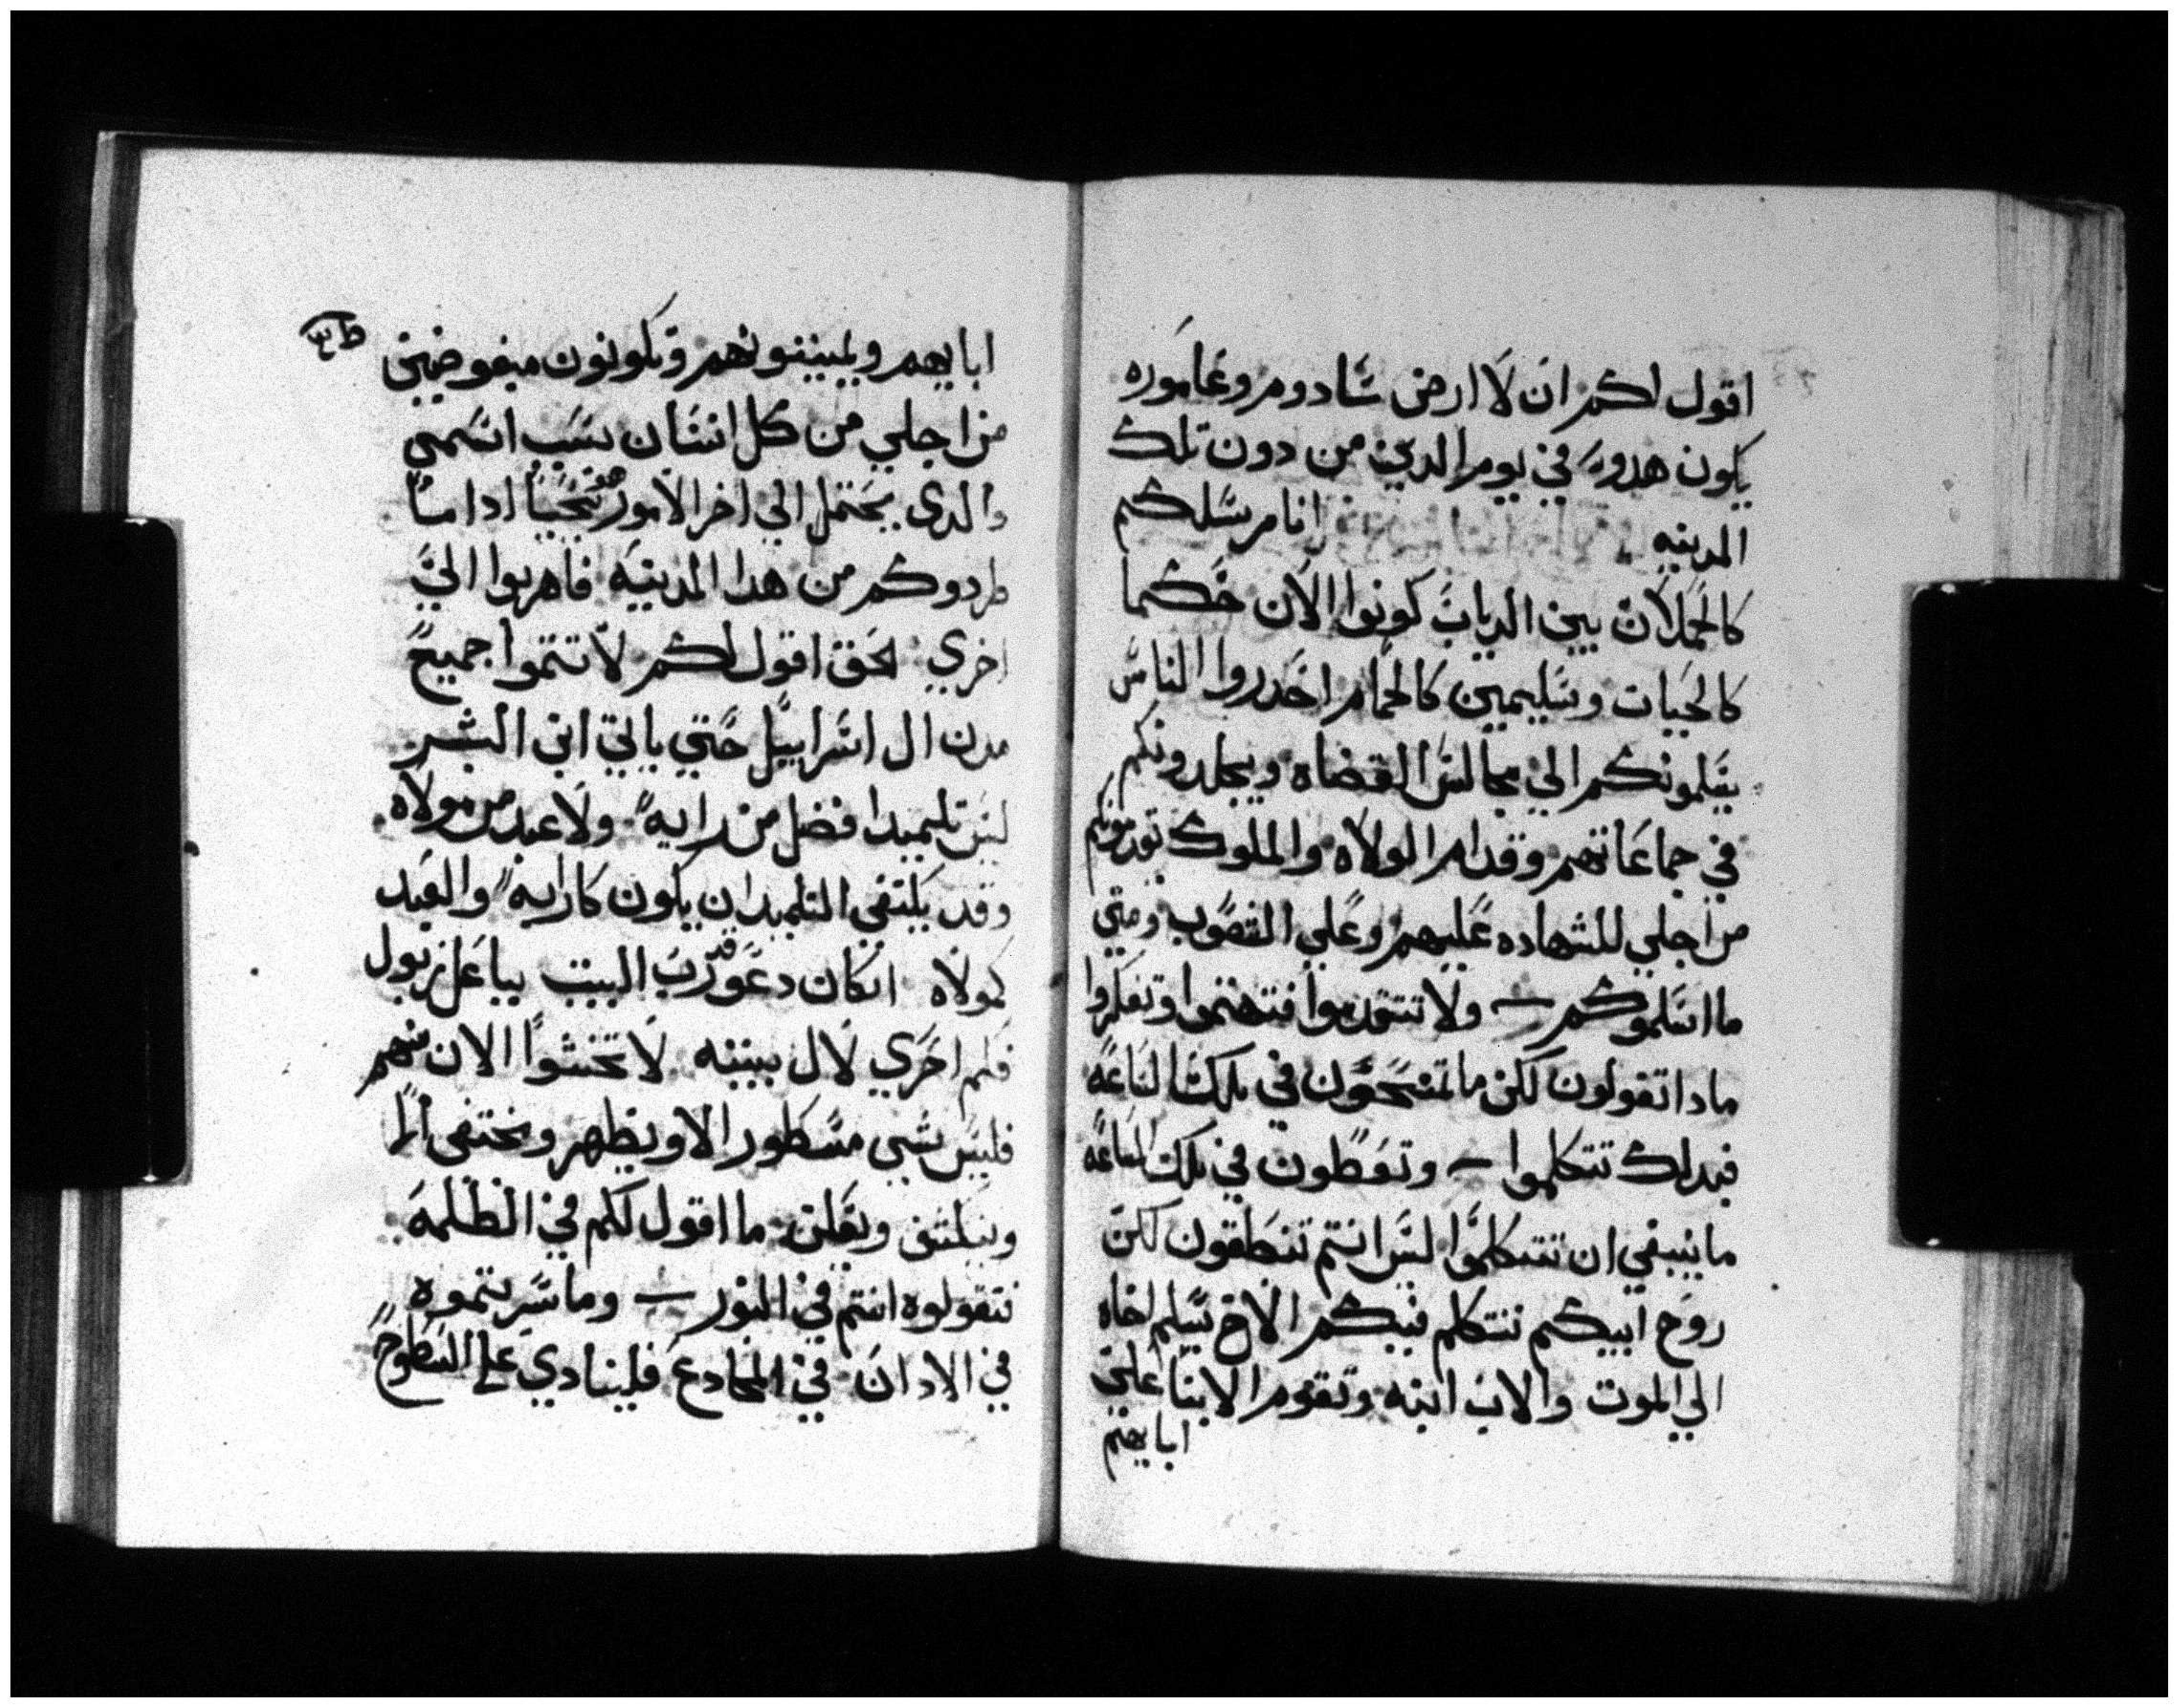 اقول لكم ان لا ارض سادوم وغاموره
يكون هدوه في يوم الدين من دون تلك
المدينه انا مرسلكم
كالحملان بين الدياب كونوا الان حكما
كالحيات وسليمين كالحمام احدروا الناس
يسلمونكم الي مجالس القضاه ويجلدونكم
في جماعاتهم وقدام الولاه والملوك تقدمونكم
من اجلي للشهاده عليهم وعلي الشعوب ومتي
ما اسلموكم ولا تتقدموا فتهتموا وتفكروا
مادا تقولون لكن ما تمنحون في تلك الساعه
فبدلك تتكلموا وتعطون في تلك الساعه
ما ينبغي ان تتكلموا ليس انتم تنطقون لكن
روح ابيكم تتكلم فيكم الاخ يسلم اخاه
الي الموت والاب ابنه وتقوم الابنا علي
ابايهم
ابايهم ويميتونهم وتكونون مبغوضين
من اجلي من كل انسان بسبب اسمي
والدي يحتمل الي اخر الامور هو يحيا ادا ما
طردوكم من هدا المدينه فاهربوا الي
اخري الحق اقول لكم لا تتموا جميع
مدن ال اسراييل حتي ياتي ابن البشر
ليس تلميدا افضل من رابه ولا عبد من مولاه
وقد يكتفي التلميد ان يكون كرابه والعبد
كمولاه ان كان دعو رب البيت بباعل زبول
فكم احري لال بيته لا تخشوا الان منهم
فليس شي مسطور الا ويظهر ومختفي الا
وينكشف ويعلن ما اقول لكم في الظلمه
تقولوه انتم في النور وما سريتموه
في الادان في المخادع فلينادي علي السطوح